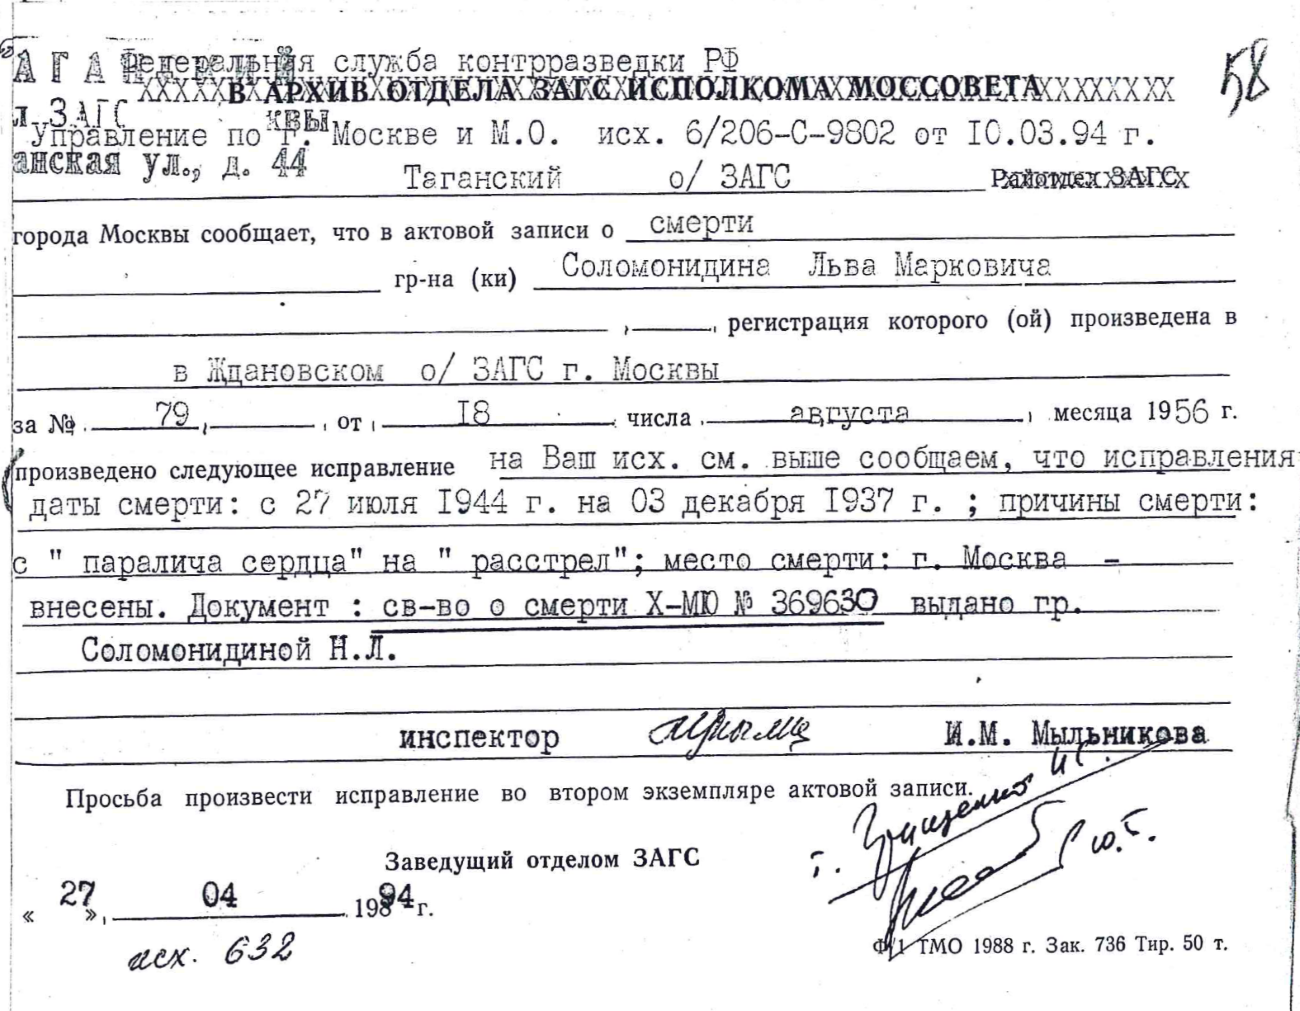 АГА Федеральная служба контрразведки РФ
В АРХИВ ОТДЕЛА ЗАГС ИСПОЛКОМА МОССОВЕТА
58
л. ЗАГС
КВЫ
Управление по г. Москве и М.О. исх. 6/206-С-9802 от 10.03.94 г.
анская ул., д. 44
Таганский о/ ЗАГС Райотдел ЗАГС
города Москвы сообщает, что в актовой записи о смерти
гр-на (ки) Соломонидина Льва Марковича
, регистрация которого (ой) произведена в
в Ждановском о/ ЗАГС г. Москвы
за № 79, от 18 числа августа месяца 1956 г.
произведено следующее исправление на Ваш исх. см. выше сообщаем, что исправления
даты смерти: с 27 июля 1944 г. на 03 декабря 1937 г. ; причины смерти:
с " паралича сердца" на " расстрел"; место смерти: г. Москва –
внесены. Документ : св-во о смерти X-МЮ № 369630 выдано гр.
Соломонидиной Н.Л.
инспектор И.М. Мыльникова
Просьба произвести исправление во втором экземпляре актовой записи.
Заведущий отделом ЗАГС
т. Грищенко И.С.
Ю.Г.
« 27 », 04 198 94 г.
исх. 632
Ф/1 ТМО 1988 г. Зак. 736 Тир. 50 т.